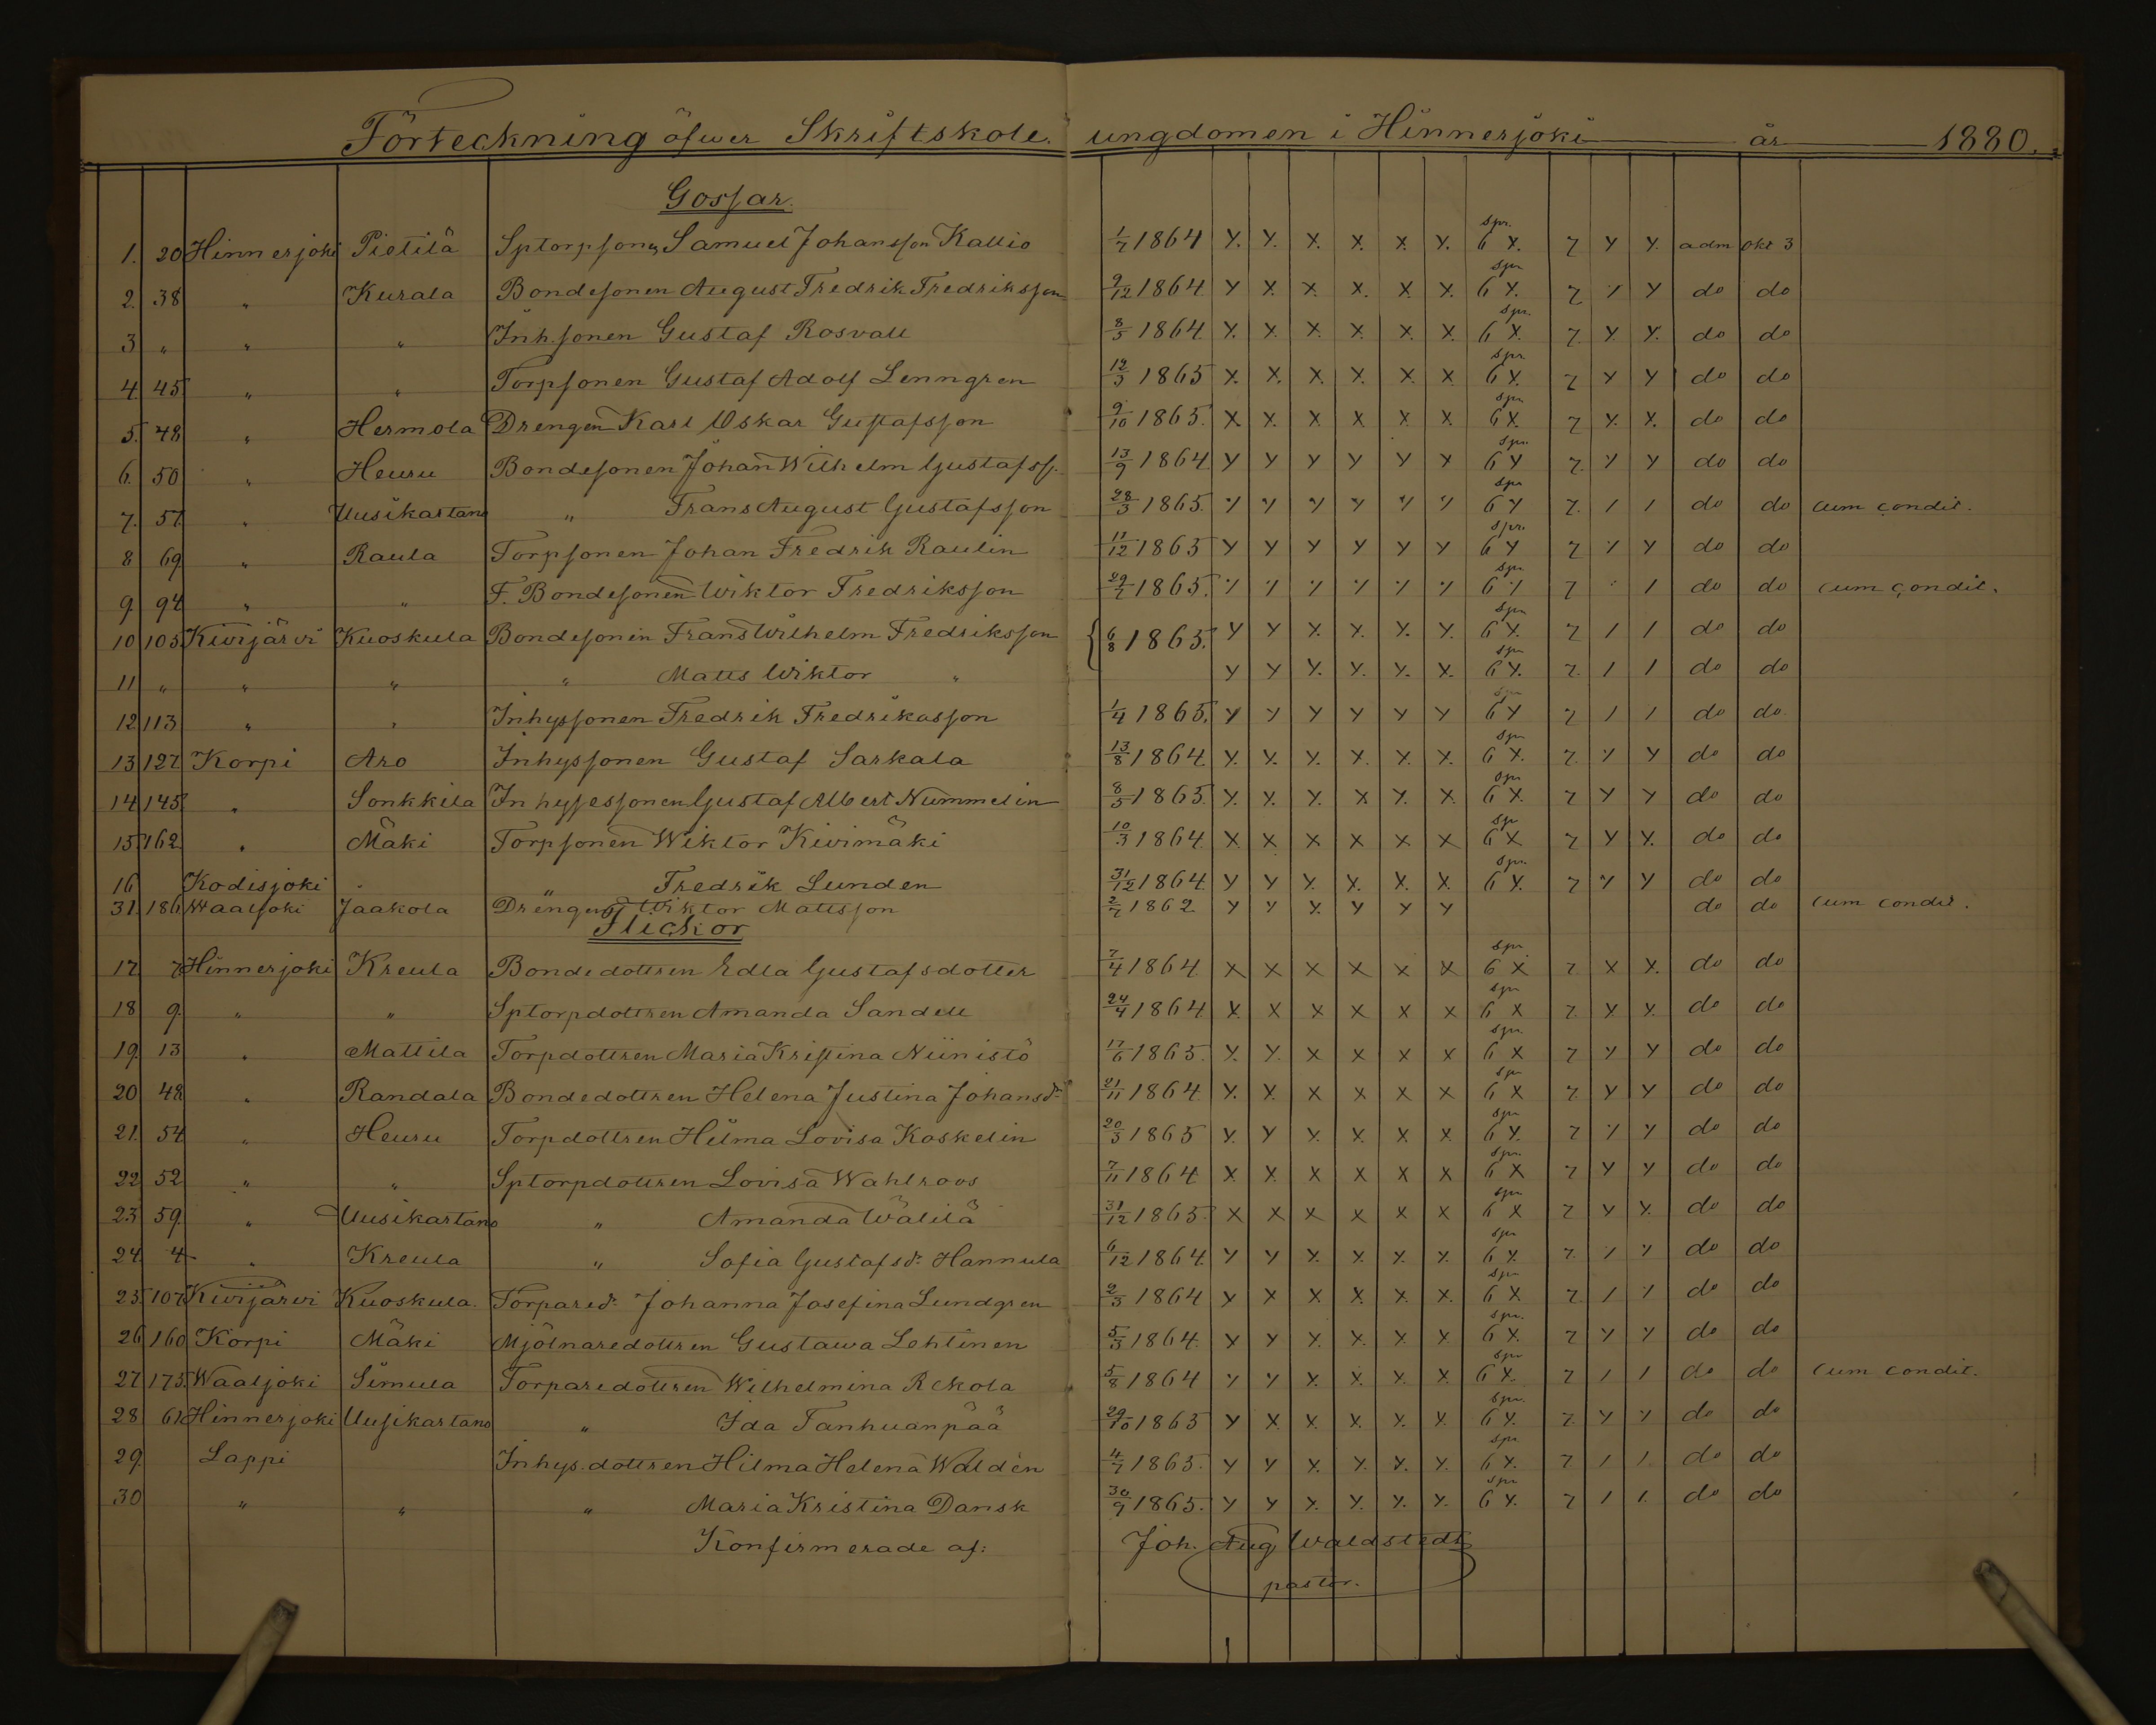 Förteckning öfwer Skriftskole. ungdomen i Hinnerjoki år 1880.
Gossar.
1. 20 Hinnerjoki Pietilä Sptorpsonen Samuel Johansson Kallio 1/7 1864 X. X. X. X. X. X. spr. 6 X. 7 X X. adm okt 3
2. 38 " Kurala Bondesonen August Fredrik Fredriksson 9/12 1864 X X. X. X. X. X. spr 6 X. 7 X X do do
3 " " " Inh.sonen Gustaf Rosvall 8/5 1864 X. X. X. X. X. X. spr. 6 X. 7. X. X. do do
4. 45. " " Torpsonen Gustaf Adolf Lenngren 12/3 1865 X. X. X. X. X. X spr. 6 X. 7 X X do do
5. 48 " Hermola Drengen Karl Oskar Gustafsson 9/10 1865. X. X. X. X X. X. spr 6 X. 7 X. X. do do
6. 50 " Heuru Bondesonen Johan Wilhelm Gustafss. 13/9 1864 X X X X X X spr. 6 X 7. X X do do
7. 57. " Uusikartano " Frans August Gustafsson 28/3 1865. X X X X X X spr 6 X 7. / / do do cum condit.
8 69 " Raula Torpsonen Johan Fredrik Raulin 11/12 1865 X X X X X X spr. 6 X 7 X X do do
9. 94 " " F. Bondesonen Wiktor Fredriksson 29/7 1865. X X X X X X spr. 6 X 7 / / do do cum condit.
10 105 Kivijärvi Kuoskula Bondesonen Frans Wilhelm Fredriksson { 6/8 1865. X X X. X. X. X. spr 6 X. 7 / / do do
11 " " " " Matts Wiktor " X X X. X. X. X. spr 6 X. 7. / / do do
12. 113 " " Inhyssonen Fredrik Fredriksson 1/4 1865. X X X X X X spr 6 X 7 / / do do.
13 127 Korpi Aro Inhyssonen Gustaf Sarkala 13/8 1864. X. X. X. X. X. X. spr 6 X. 7. X X do do
14 145 " Sonkkila Inhysessonen Gustaf Albert Nummelin 8/5 1865. X. X. X. X X. X. spr 6 X. 7 X X do do
15. 162. " Mäki Torpsonen Wiktor Kivimäki 10/3 1864 X. X X X X X spr 6 X 7 X X. do do
16 Kodisjoki " Fredrik Lunden 31/12 1864. X X X. X. X. X. spr. 6 X. 7 X X do do
31. 186 Waaljoki Jaakola Drengen Wiktor Mattsson 2/7 1862 X X X. X X X do do cum condit.
Flickor
17. 7 Hinnerjoki Kreula Bondedottren Edla Gustafsdotter 7/4 1864 X X X X X X spr 6 X 7 X X. do do
18 9. " " Sptorpdottren Amanda Sandell 24/4 1864 X. X X X X X spr 6 X 7. X. X. do do
19. 13 " Mattila Torpdottren Maria Kristina Niinistö 17/6 1865. X. X. X X X X spr. 6 X 7 X X do do
20 48 " Randala Bondedottren Helena Justina Johansd:r 21/11 1864 X. X. X X X X spr 6 X 7. X X do do
21. 54 " Heuru Torpdottren Hilma Lovisa Koskelin 20/3 1865 X. X X. X. X. X. spr 6 X. 7 X X do do
22 52 " " Sptorpdottren Lovisa Wahlroos 7/11 1864 X. X. X X X X spr. 6 X 7 X X do do
23. 59. " Uusikartano " Amanda Wälilä 31/12 1865. X X X X X X spr 6 X 7 X X. do do
24. 4 " Kreula " Sofia Gustafsd:r Hannula 6/12 1864. X X X. X. X. X. spr 6 X. 7. / X do do
25. 107 Kivijärvi Kuoskula. Torpared:r Johanna Josefina Lundgren 2/3 1864 X X X. X. X. X. spr 6 X 7. / X do do
26 160 Korpi Mäki Mjölnaredottren Gustawa Lehtinen 5/3 1864. X X X. X. X. X. spr. 6 X. 7 X X do do
27 175. Waaljoki Simula Torparedottren Wilhelmina Rekola 5/8 1864 X X X. X. X. X. spr 6 X. 7 / / do do cum condit.
28 61 Hinnerjoki Uusikartano " Ida Tanhuanpää 29/10 1865 X X. X. X. X. X. spr. 6 X. 7. X X do do
29. Lappi Inhys.dottren Hilma Helena Waldén 4/7 1865. X X X. X. X. X. spr 6 X. 7 / / do do
30 " " " Maria Kristina Dansk 30/9 1865. X X X. X. X. X. spr 6 X. 7 / /. do do
Konfirmerade af: Joh. Aug Waldstedt
pastor.